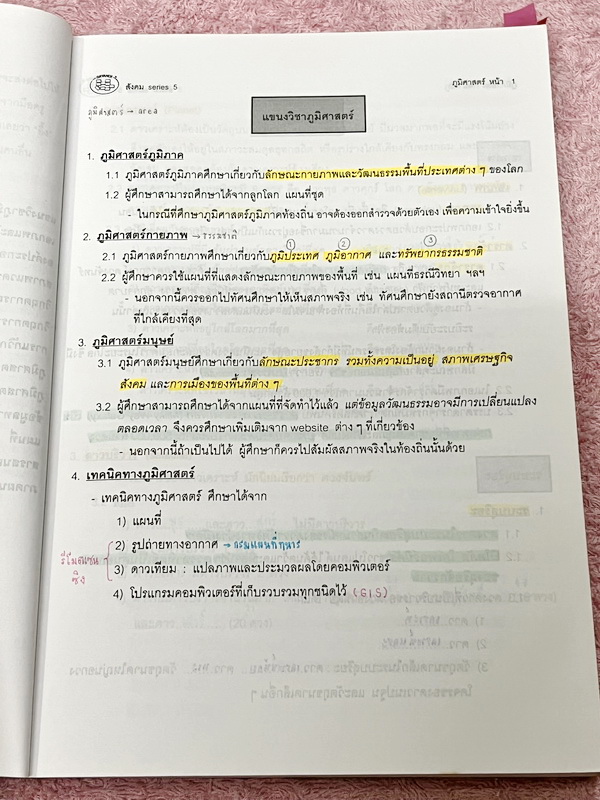 สังคม series 5
ภูมิศาสตร์ หน้า 1
ภูมิศาสตร์ → area
แขนงวิชาภูมิศาสตร์
1. ภูมิศาสตร์ภูมิภาค
1.1 ภูมิศาสตร์ภูมิภาคศึกษาเกี่ยวกับลักษณะกายภาพและวัฒนธรรมพื้นที่ประเทศต่าง ๆ ของโลก
1.2 ผู้ศึกษาสามารถศึกษาได้จากลูกโลก แผนที่ชุด
- ในกรณีที่ศึกษาภูมิศาสตร์ภูมิภาคท้องถิ่น อาจต้องออกสำรวจด้วยตัวเอง เพื่อความเข้าใจยิ่งขึ้น
2. ภูมิศาสตร์กายภาพ → ธรรมชาติ
① ② ③
2.1 ภูมิศาสตร์กายภาพศึกษาเกี่ยวกับภูมิประเทศ ภูมิอากาศ และทรัพยากรธรรมชาติ
2.2 ผู้ศึกษาควรใช้แผนที่ที่แสดงลักษณะกายภาพของพื้นที่ เช่น แผนที่ธรณีวิทยา ฯลฯ
- นอกจากนี้ควรออกไปทัศนศึกษาให้เห็นสภาพจริง เช่น ทัศนศึกษายังสถานีตรวจอากาศ
ที่ใกล้เคียงที่สุด
3. ภูมิศาสตร์มนุษย์
3.1 ภูมิศาสตร์มนุษย์ศึกษาเกี่ยวกับลักษณะประชากร รวมทั้งความเป็นอยู่ สภาพเศรษฐกิจ
สังคม และการเมืองของพื้นที่ต่าง ๆ
3.2 ผู้ศึกษาสามารถศึกษาได้จากแผนที่ที่จัดทำไว้แล้ว แต่ข้อมูลวัฒนธรรมอาจมีการเปลี่ยนแปลง
ตลอดเวลา จึงควรศึกษาเพิ่มเติมจาก website ต่าง ๆ ที่เกี่ยวข้อง
- นอกจากนี้ถ้าเป็นไปได้ ผู้ศึกษาก็ควรไปสัมผัสสภาพจริงในท้องถิ่นนั้นด้วย
4. เทคนิคทางภูมิศาสตร์
- เทคนิคทางภูมิศาสตร์ ศึกษาได้จาก
1) แผนที่
2) รูปถ่ายทางอากาศ → กรมแผนที่ทหาร
รีโมตเซนซิง
3) ดาวเทียม : แปลภาพและประมวลผลโดยคอมพิวเตอร์
4) โปรแกรมคอมพิวเตอร์ที่เก็บรวบรวมทุกชนิดไว้ (GIS)